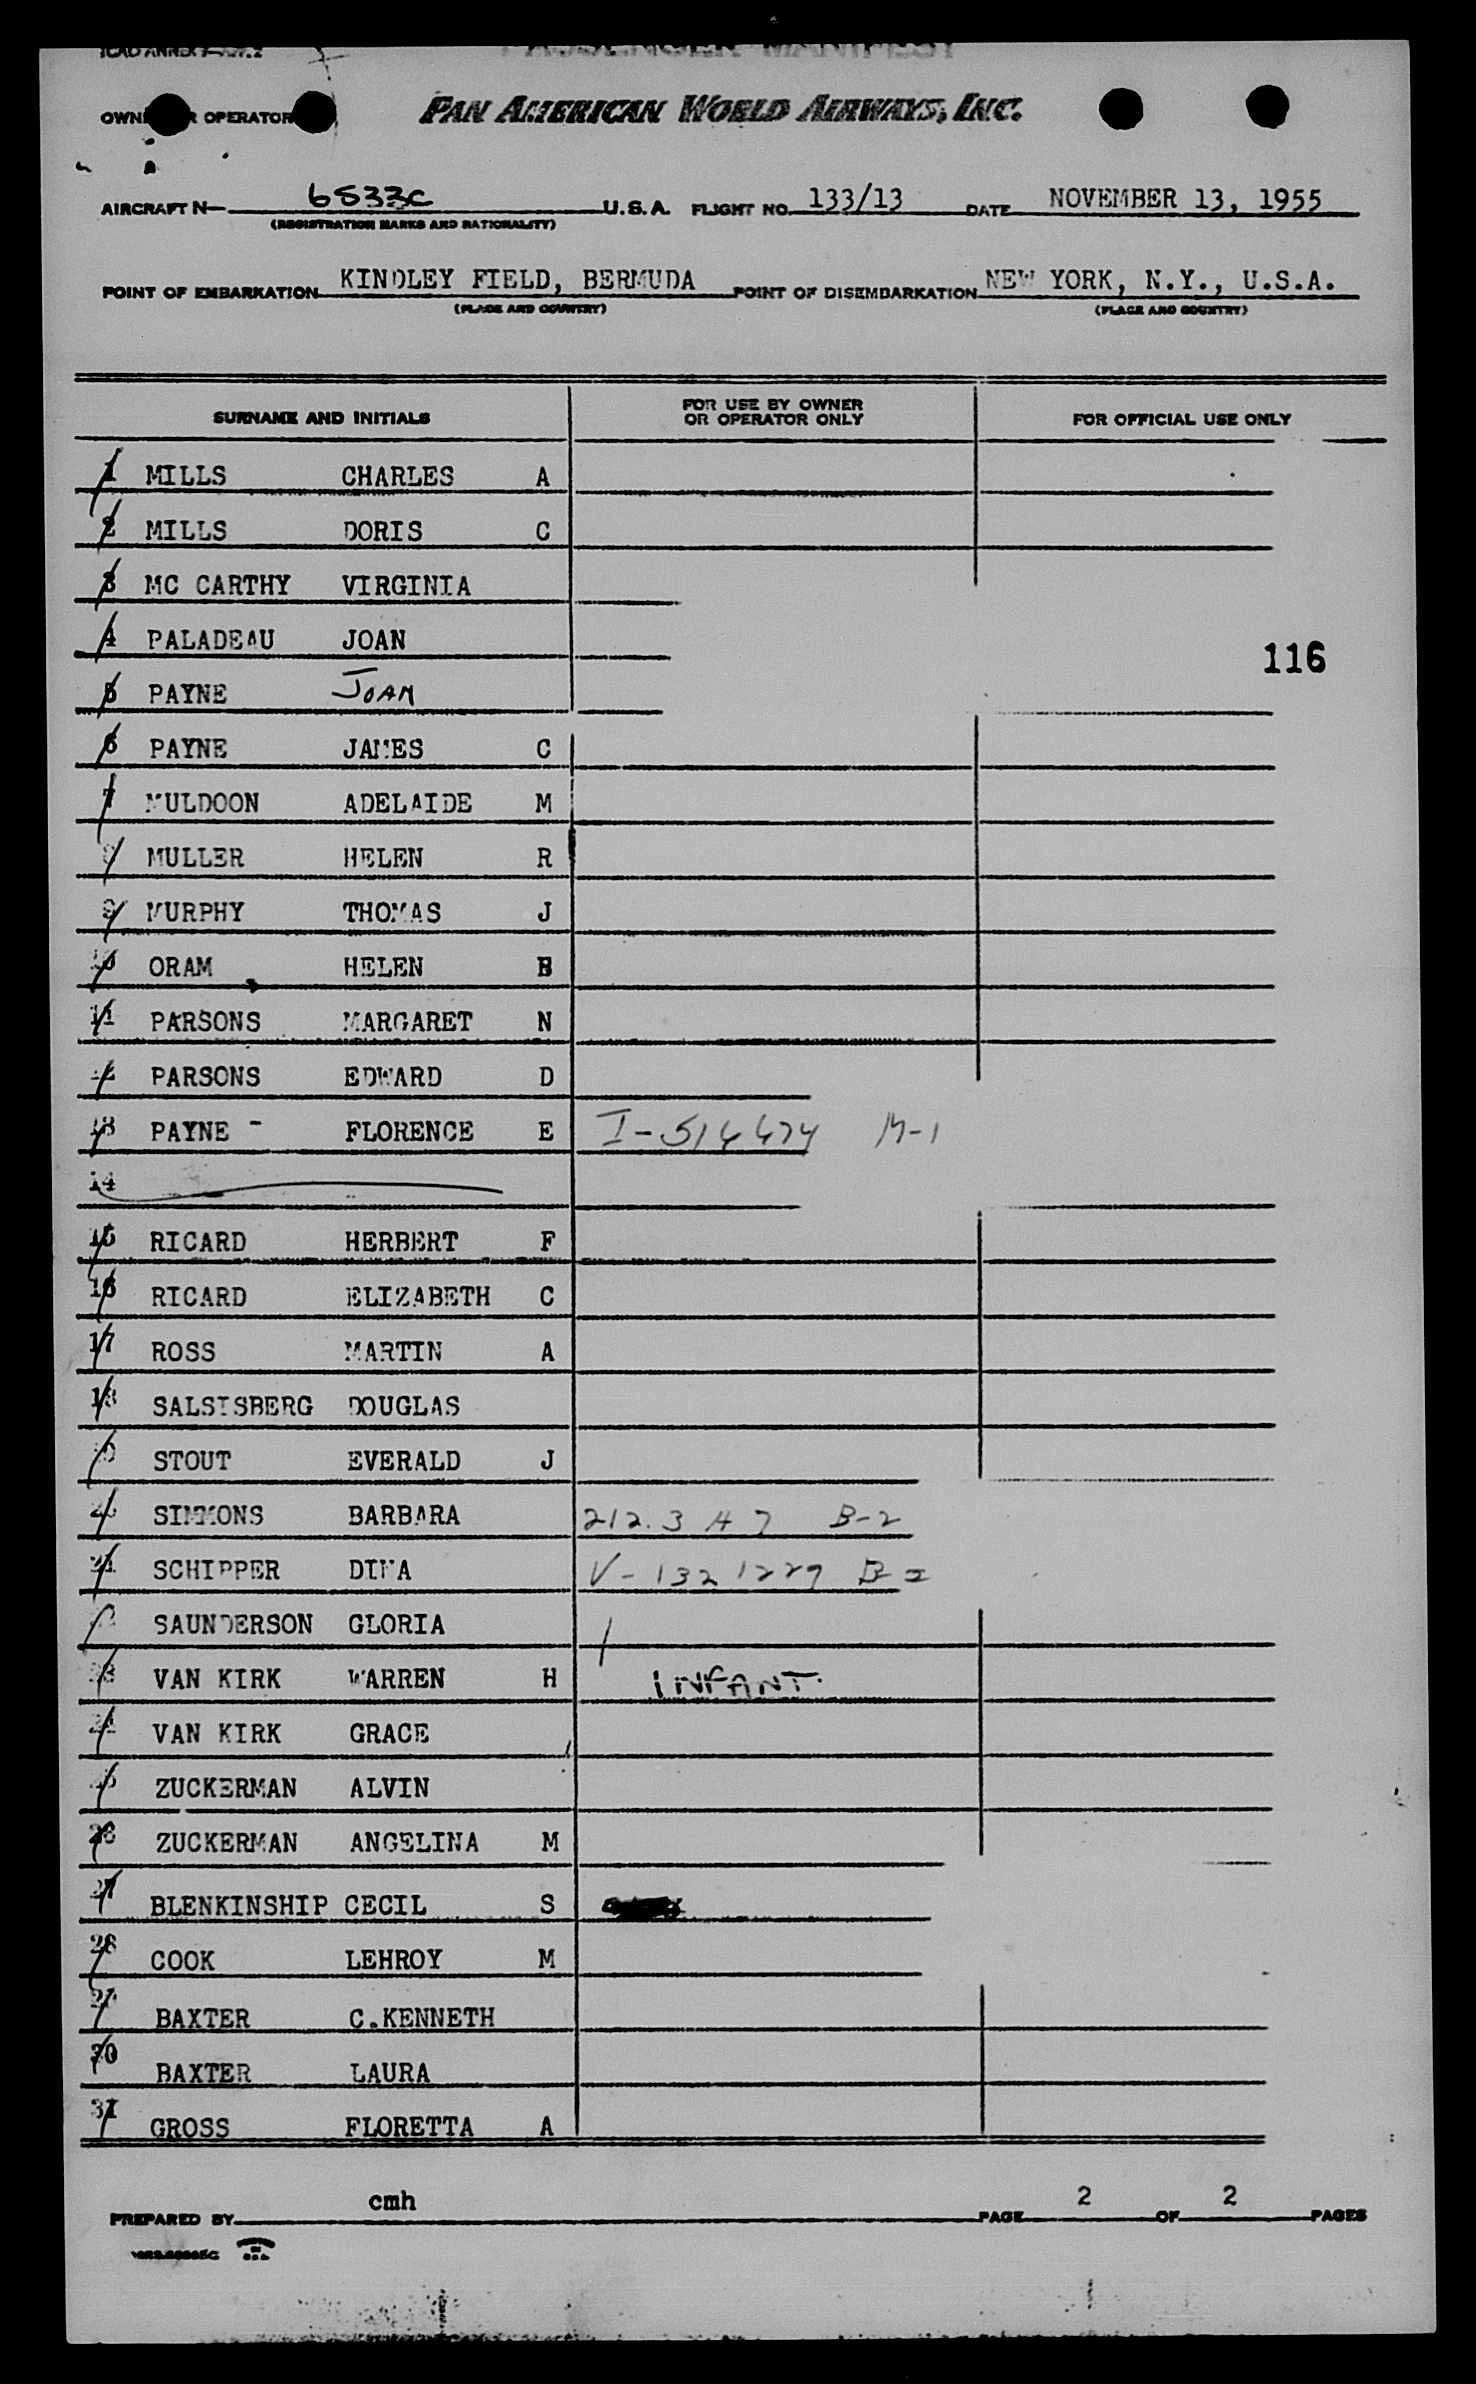 PASSENGER MANIFEST
OWNER OR OPERATOR PAN AMERICAN WORLD AIRWAYS, INC.
AIRCRAFT N- 6533C U.S.A. FLIGHT NO. 133/13 DATE NOVEMBER 13, 1955
(REGISTRATION MARKS AND NATIONALITY)
POINT OF EMBARKATION KINDLEY FIELD, BERMUDA POINT OF DISEMBARKATION NEW YORK, N.Y., U.S.A.
(PLACE AND COUNTRY) (PLACE AND COUNTRY)
SURNAME AND INITIALS FOR USE BY OWNER OR OPERATOR ONLY FOR OFFICIAL USE ONLY
1 MILLS CHARLES A
2 MILLS DORIS C
3 MC CARTHY VIRGINIA
4 PALADEAU JOAN
116
5 PAYNE JOAN
6 PAYNE JAMES C
7 MULDOON ADELAIDE M
8 MULLER HELEN R
9 MURPHY THOMAS J
10 ORAM HELEN B
11 PARSONS MARGARET N
12 PARSONS EDWARD D
13 PAYNE - FLORENCE E I-514474 M-1
14
15 RICARD HERBERT F
16 RICARD ELIZABETH C
17 ROSS MARTIN A
18 SALSISBERG DOUGLAS
19 STOUT EVERALD J
20 SIMMONS BARBARA 212.3 A 7 B-2
21 SCHIPPER DINA V-1321229 B-2
22 SAUNDERSON GLORIA
23 VAN KIRK WARREN H INFANT.
24 VAN KIRK GRACE
25 ZUCKERMAN ALVIN
26 ZUCKERMAN ANGELINA M
27 BLENKINSHIP CECIL S
28 COOK LEHROY M
29 BAXTER C.KENNETH
30 BAXTER LAURA
31 GROSS FLORETTA A
PREPARED BY cmh PAGE 2 OF 2 PAGES